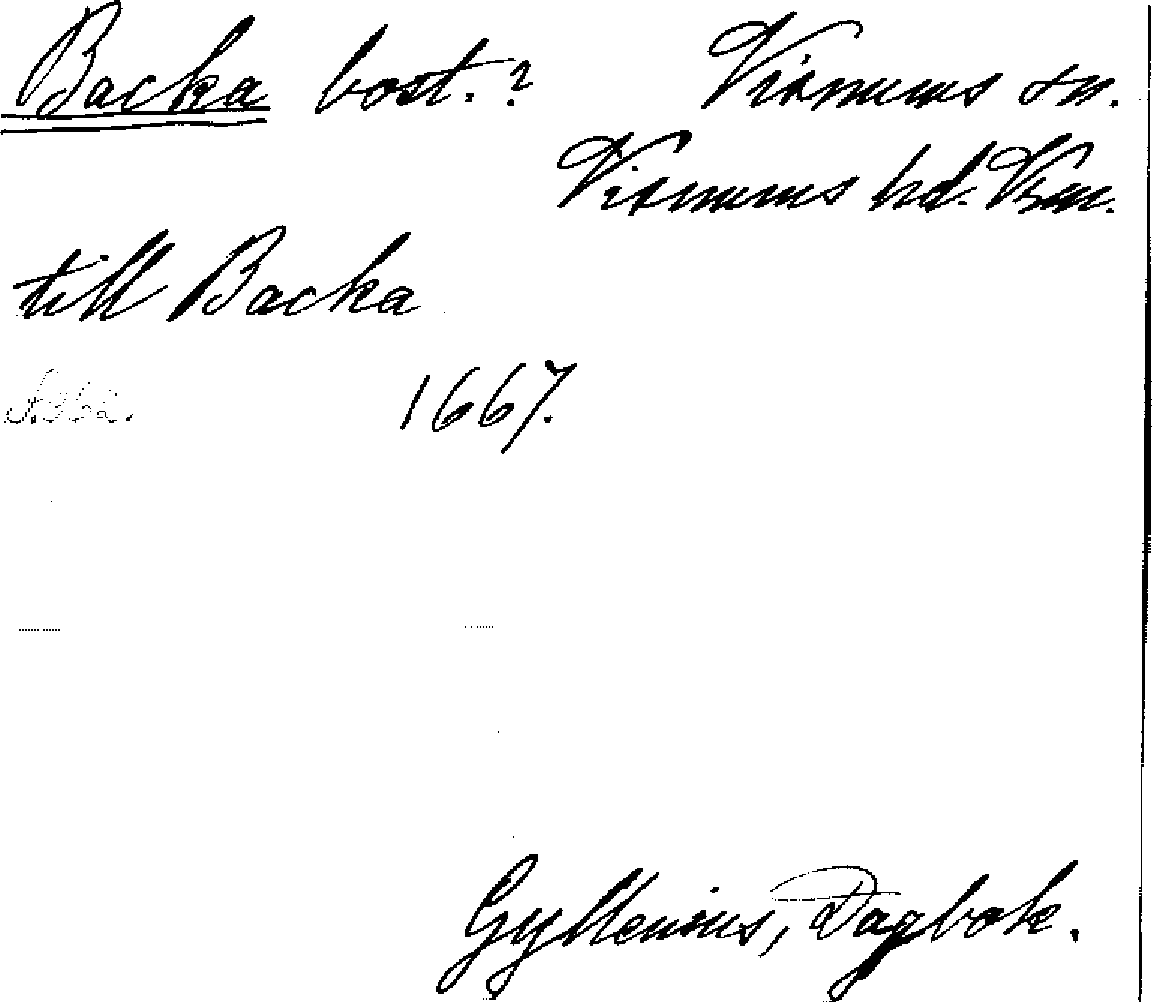 Backa bost.? Visnums sn.
Visnums hd. Vrm.
till Backa
S. 362. 1667.
Gyllenius, Dagbok.